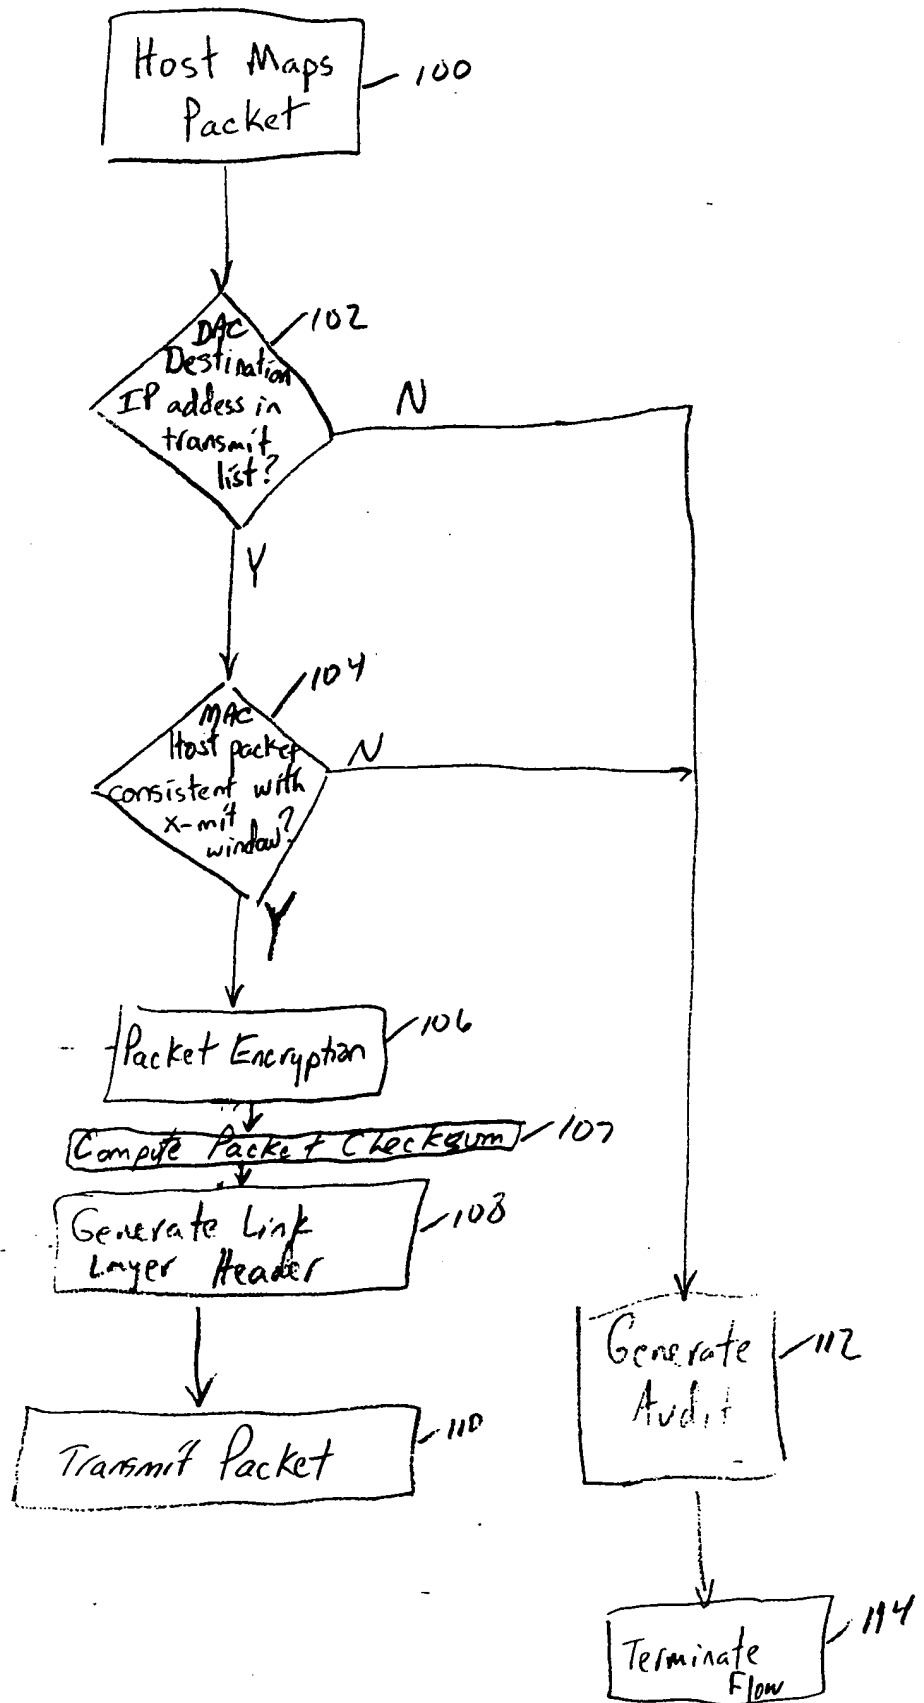 Host Maps
Packet
100
102
DAC
Destination
IP addess in
transmit
list?
N
Y
104
MAC
Host packet
consistent with
x-mit
window?
N
Y
106
Packet Encryption
Compute Packet Checksum
107
Generate Link
Layer Header
108
Transmit Packet
110
Generate
Audit
112
Terminate
Flow
114